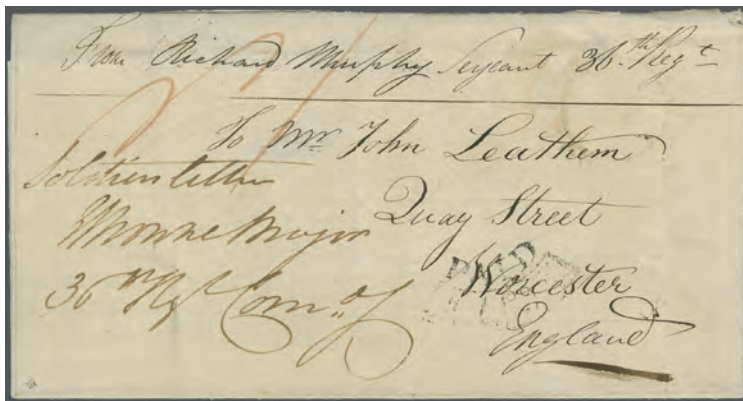 From Richard Murphy Serjeant 36.th Regt
To Mr John Leathem
Quay Street
Worcester
England
Soldiers letter
Major
36th Regt Com.g
PAID